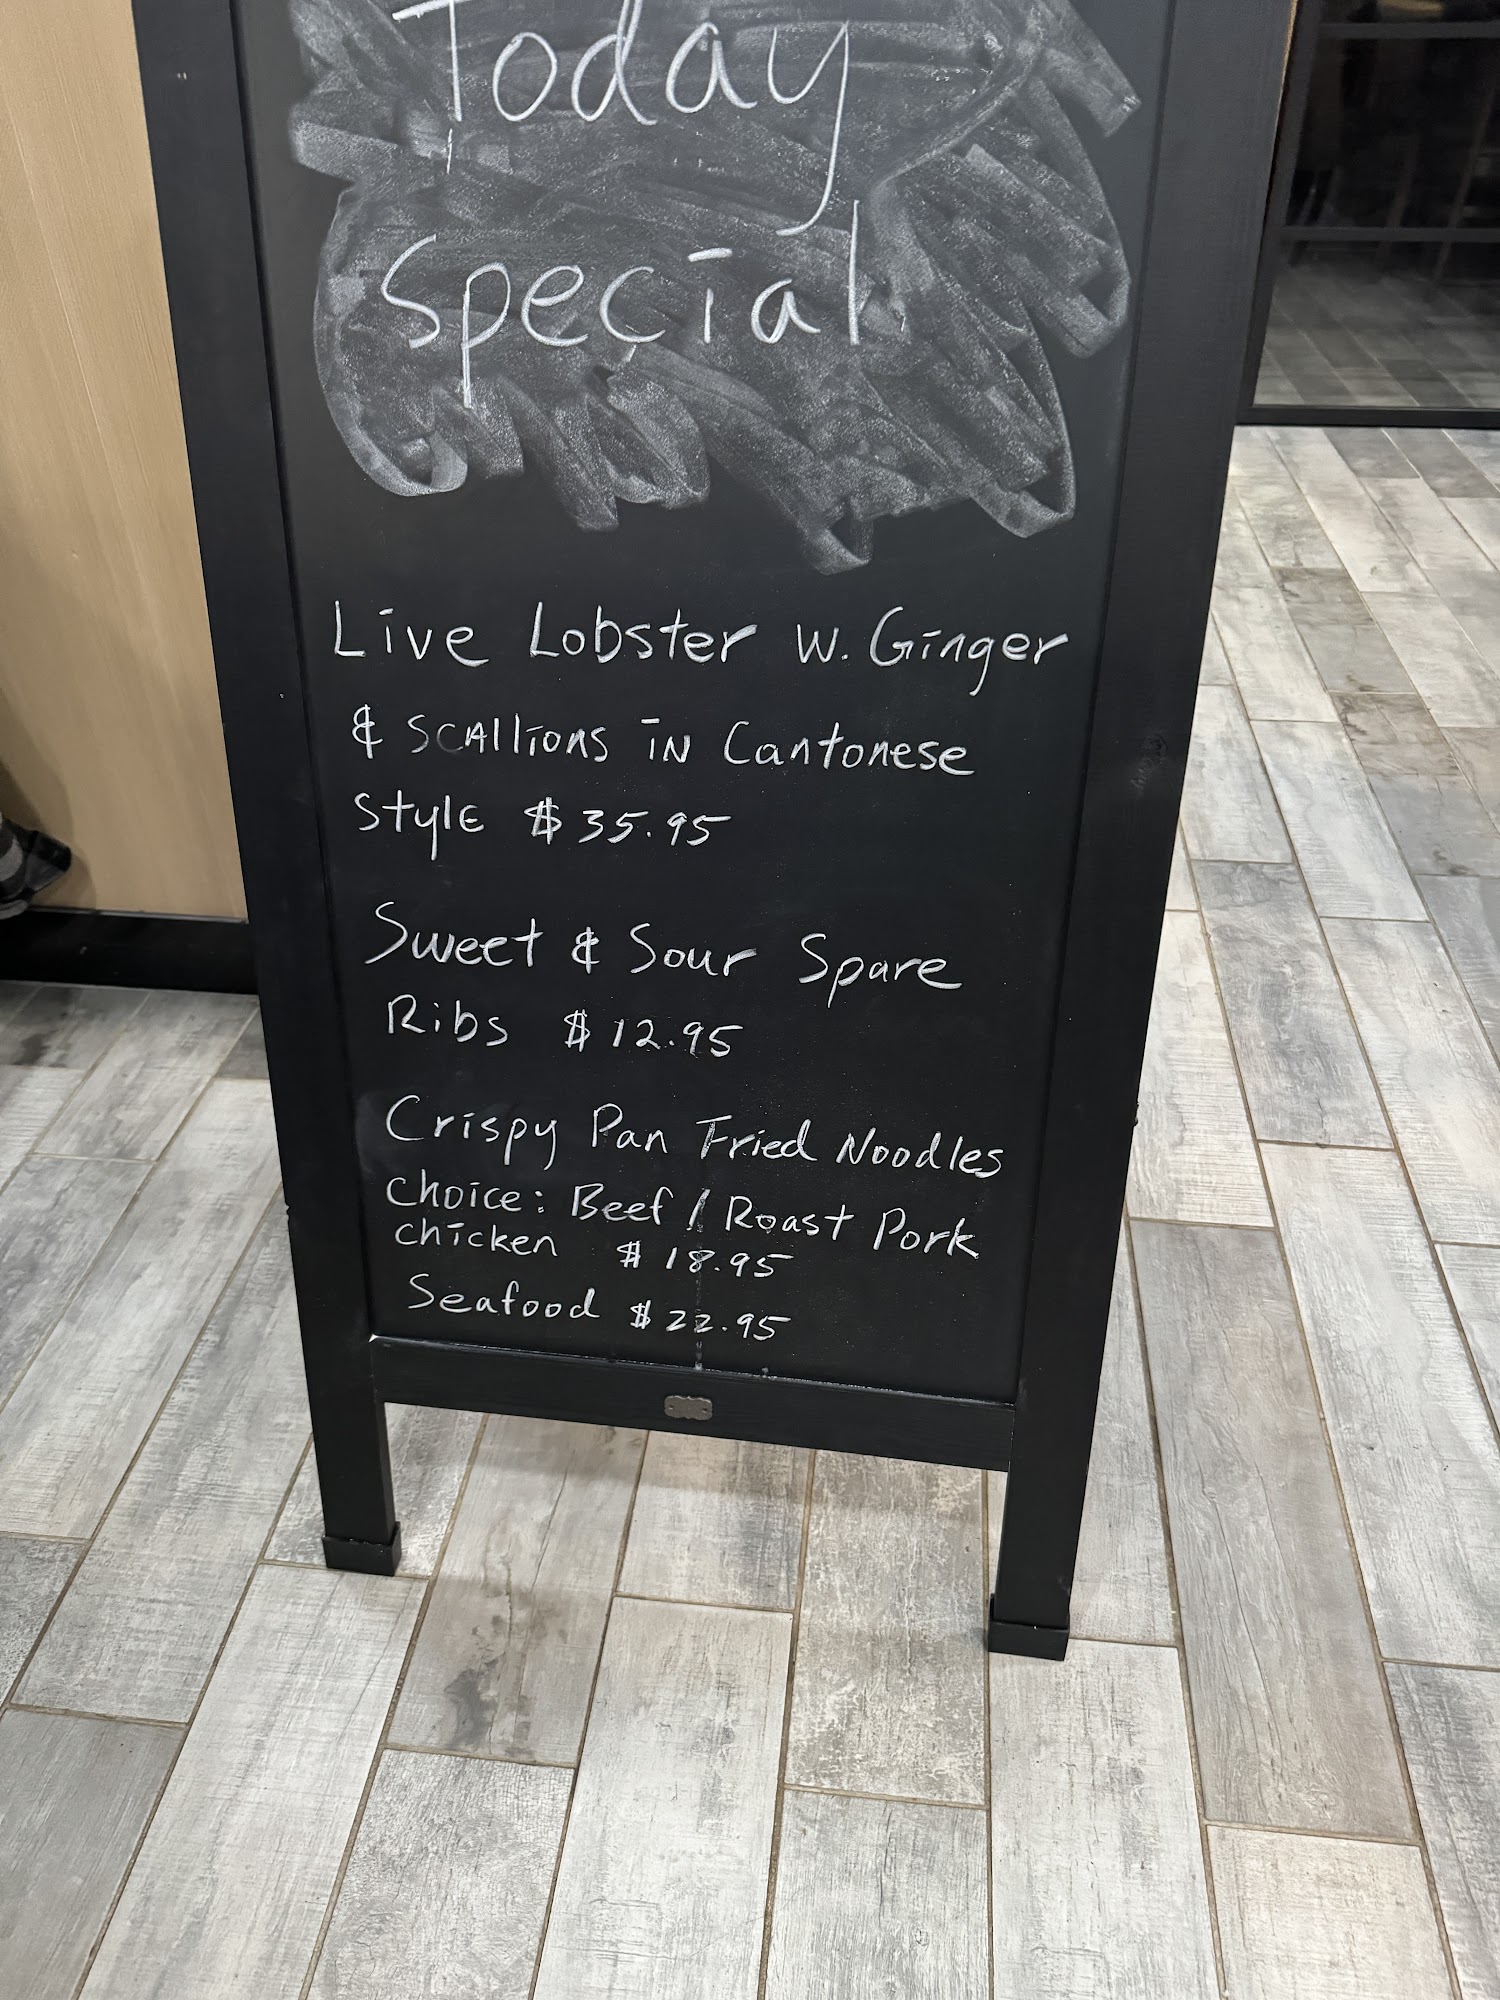 Today
Special
Live Lobster W. Ginger
& SCAllions iN Cantonese
Style $35.95
Sweet & Sour Spare
Ribs $12.95
Crispy Pan Fried Noodles
choice: Beef / Roast Pork
chicken $18.95
Seafood $22.95